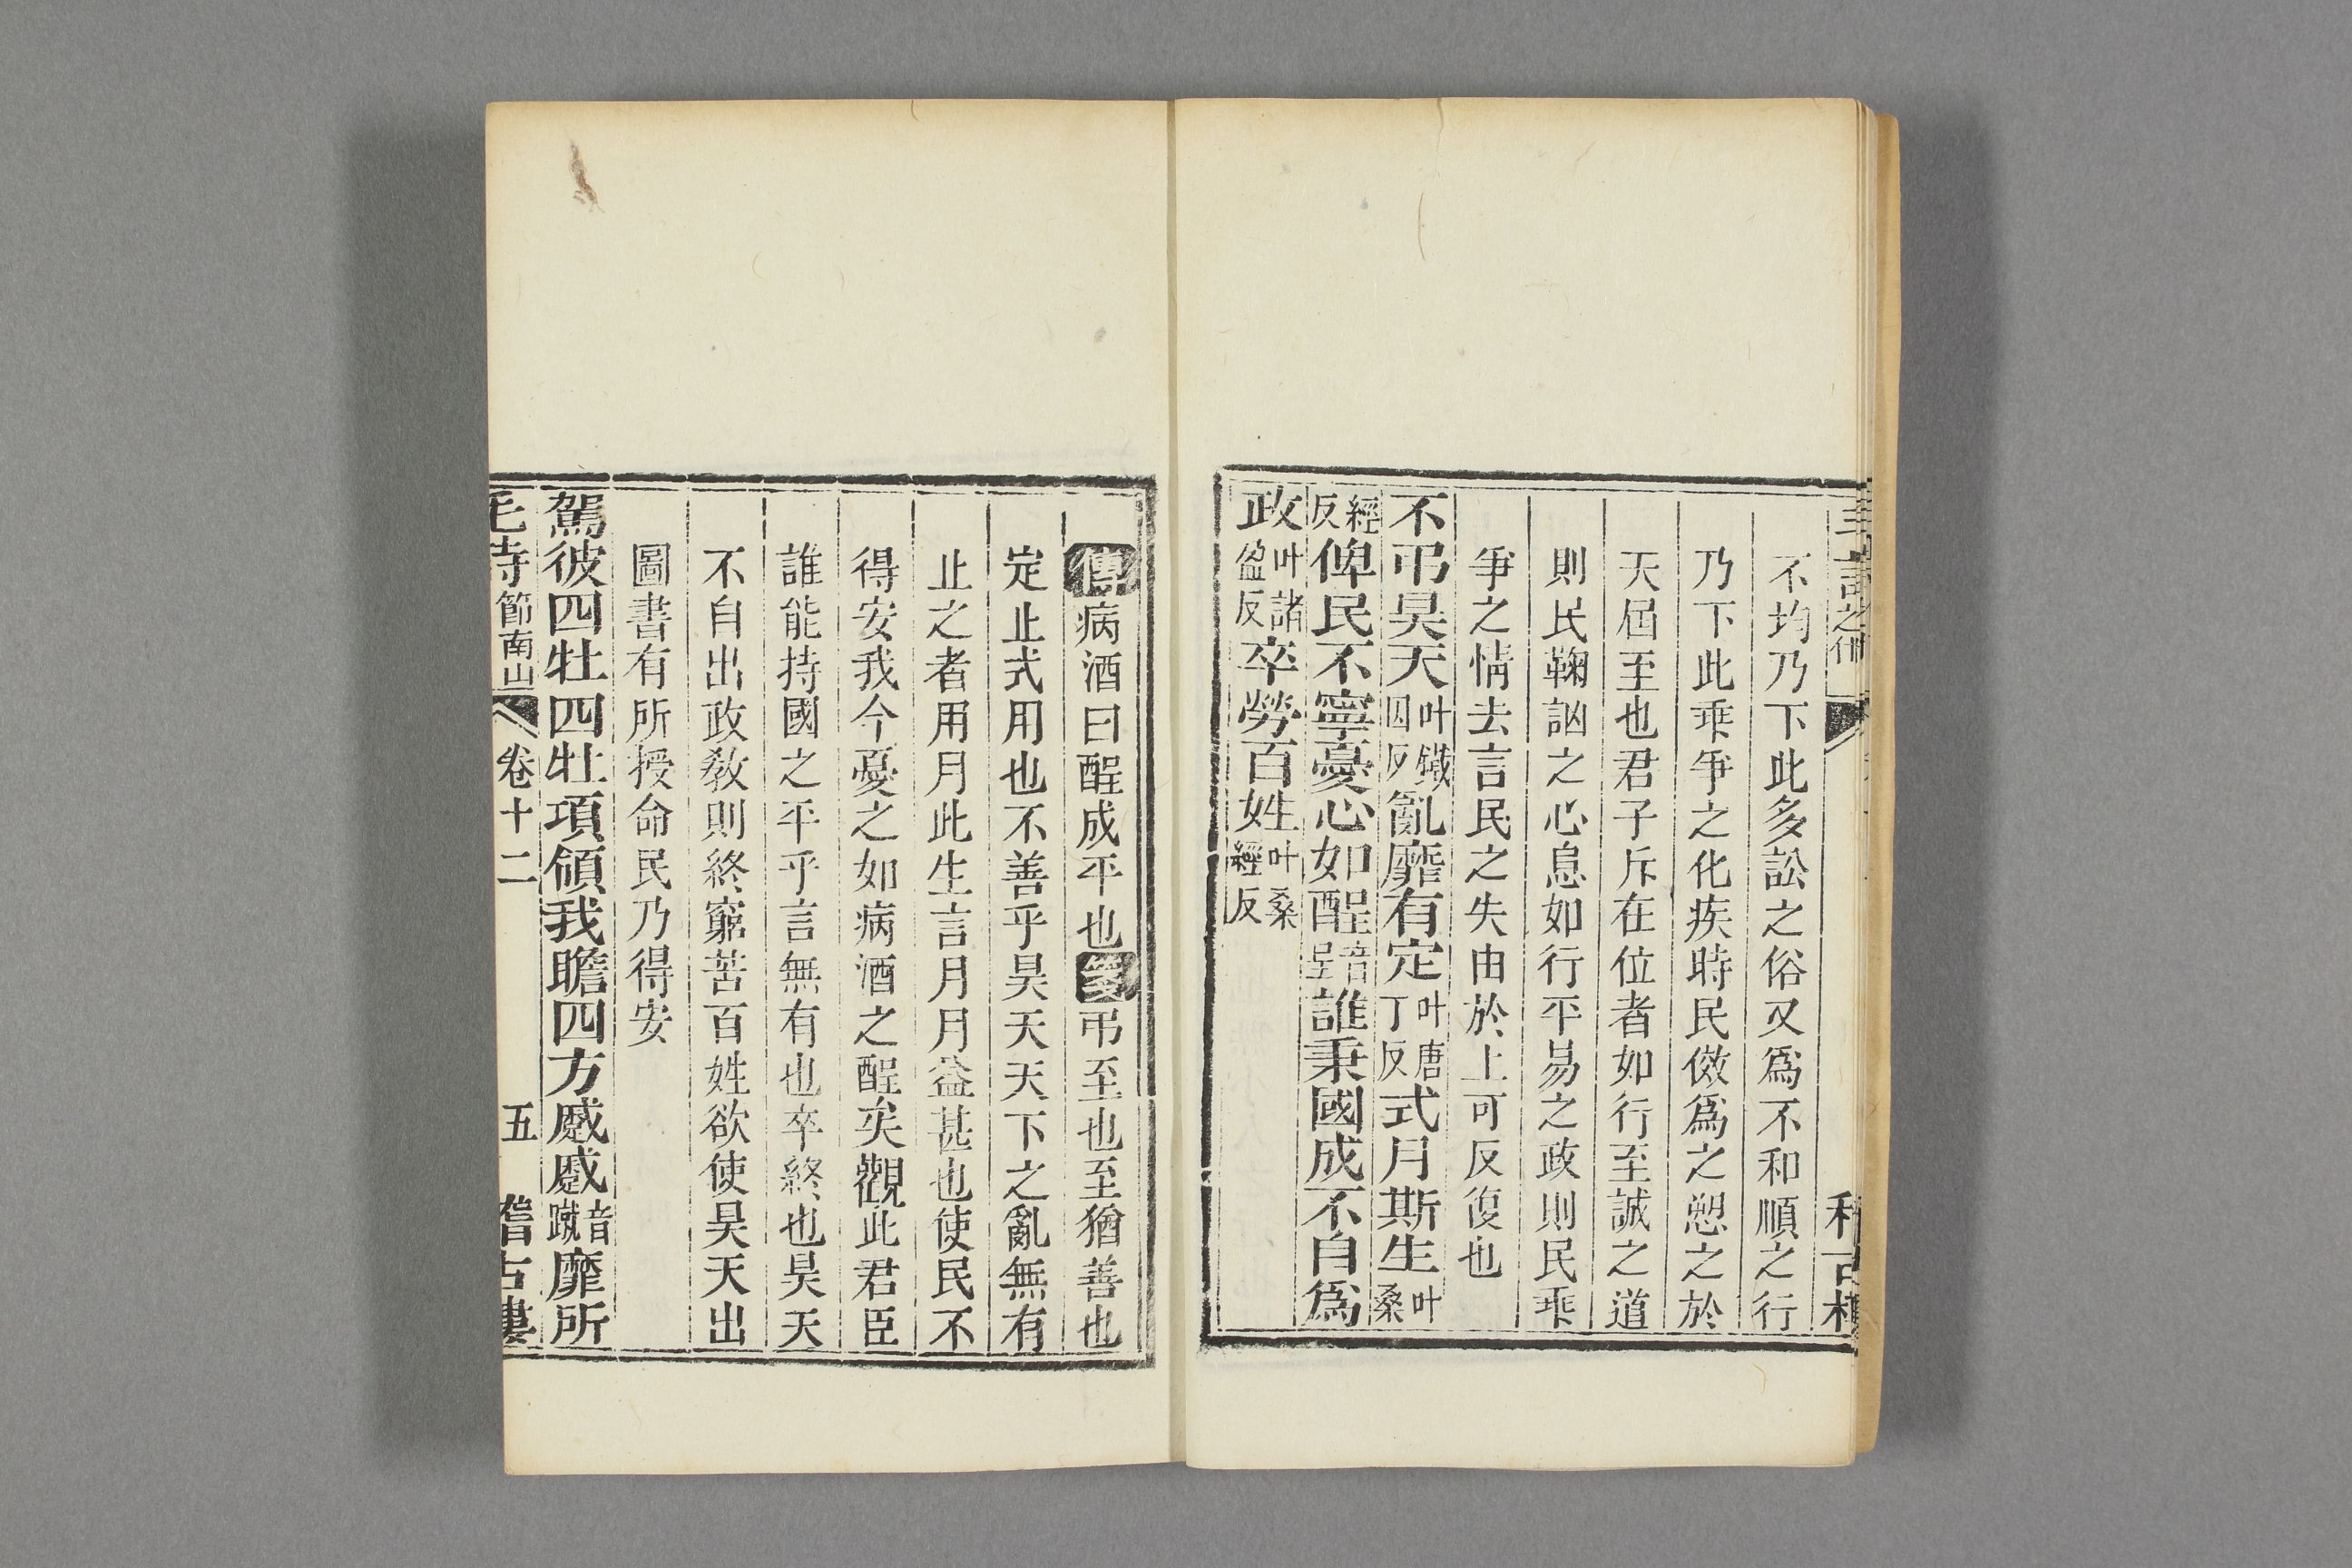 不均乃下此多訟之俗又爲不和順之行
乃下此乖爭之化疾時民傚爲之愬之於
天屆至也君子斥在位者如行至誠之道
則民鞠訩之心息如行平易之政則民乖
爭之情去言民之失由於上可反復也
不弔昊天叶鐵因反亂靡有定叶唐丁反式月斯生叶桑
經反俾民不寧憂心如酲音呈誰秉國成不自爲
政叶諸盈反卒勞百姓叶桑經反
傳病酒曰酲成平也箋弔至也至猶善也
定止式用也不善乎昊天天下之亂無有
止之者用月此生言月月益甚也使民不
得安我今憂之如病酒之酲矣觀此君臣
誰能持國之平乎言無有也卒終也昊天
不自出政敎則終窮苦百姓欲使昊天出
圖書有所授命民乃得安
駕彼四牡四牡項領我瞻四方蹙蹙音蹴靡所
毛詩節南山 卷十二 五 稽古樓